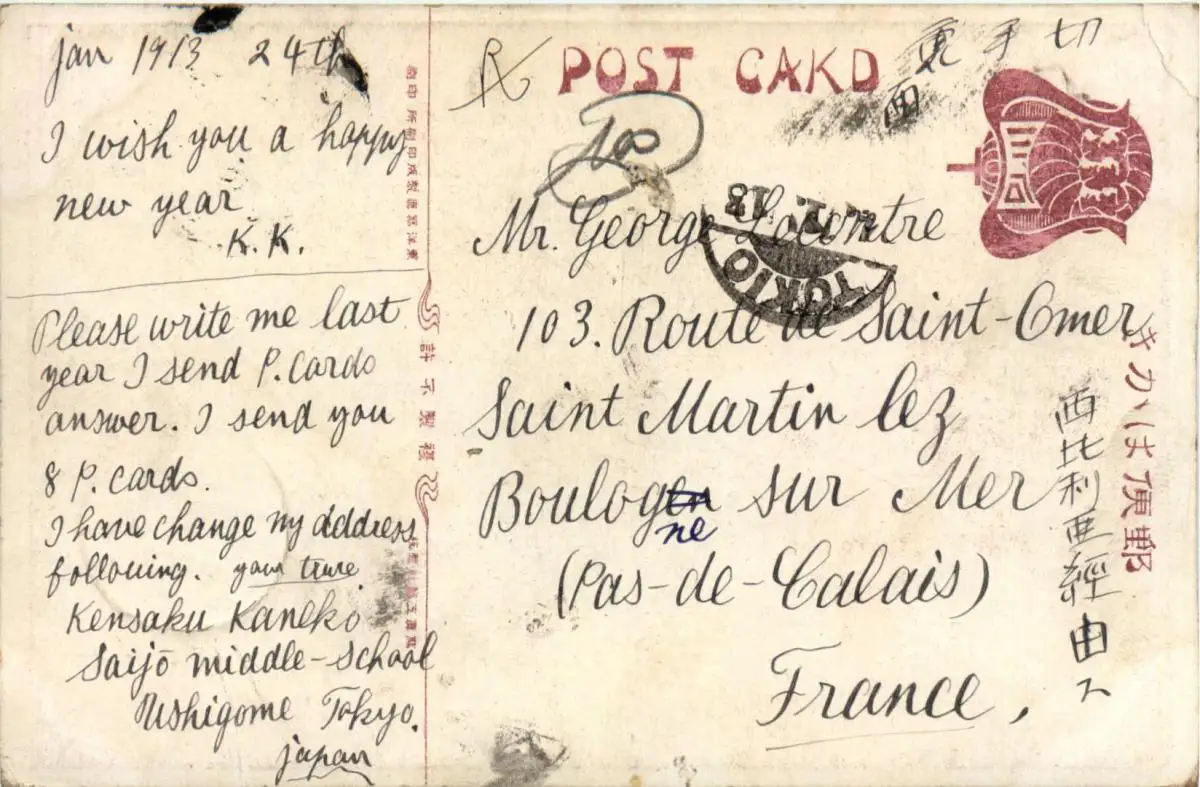 jan 1913 24th
I wish you a happy
new year
K. K.
Please write me last
year I send P. Cards
answer. I send you
8 P. cards.
I have change my address
following. your true
Kensaku Kaneko
Saijō middle-school
Ushigome Tokyo.
japan
POST CARD
切手裏面
Mr. George Lecontre
103. Route de Saint-Omer
Saint Martin lez
Boulogen sur Mer
ne
(Pas-de-Calais)
France,
TOKIO
13
西比利亜經由
郵便はかき